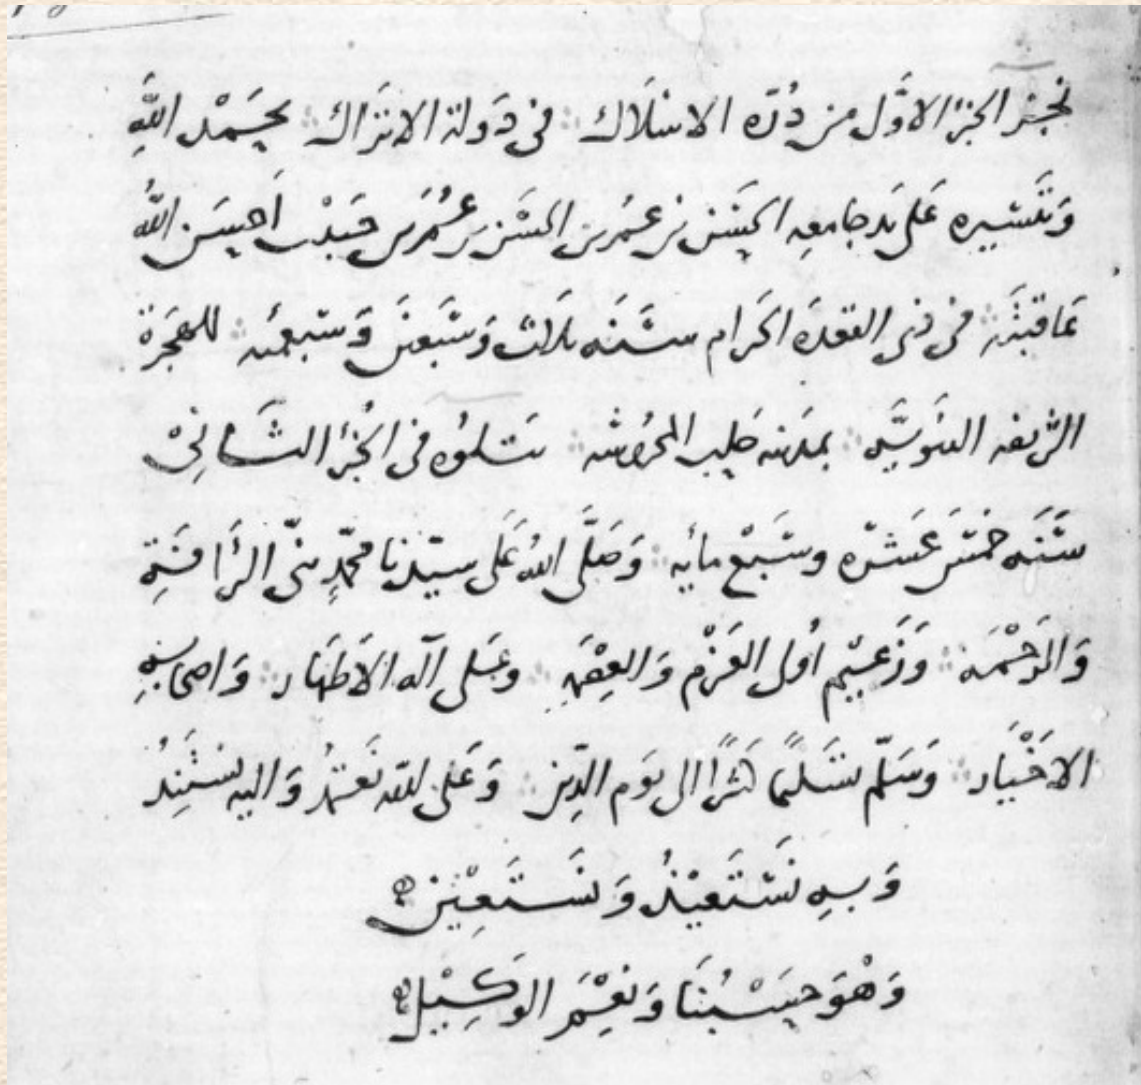 نجز الجزء الاول من درة الاسلاك في دولة الاتراك بحمد الله
وتيسيره على يد جامعه الحسن بن عمر بن الحسن بن عمر بن حبيب احسن الله
عاقبته في ذي القعدة الحرام سنة ثلاث وسبعين وسبعمئة للهجرة
الشريفة النبوية بمدينة حلب المحروسة يتلوه في الجزء الثاني
سنة خمس عشرة وسبع مائة وصلى الله على سيدنا محمد نبي الرأفة
والرحمة وزعيم اولى العزم والعصمة وعلى آله الاطهار واصحابه
الاخيار وسلم تسليما كثيرا الى يوم الدين وعلى الله نعتمد واليه نستند
وَبِهِ نَسْتَعِيْذُ وَنَسْتَعِيْن
وَهْوَ حَسْبُنَا وَنِعْمَ الوَكِيْل